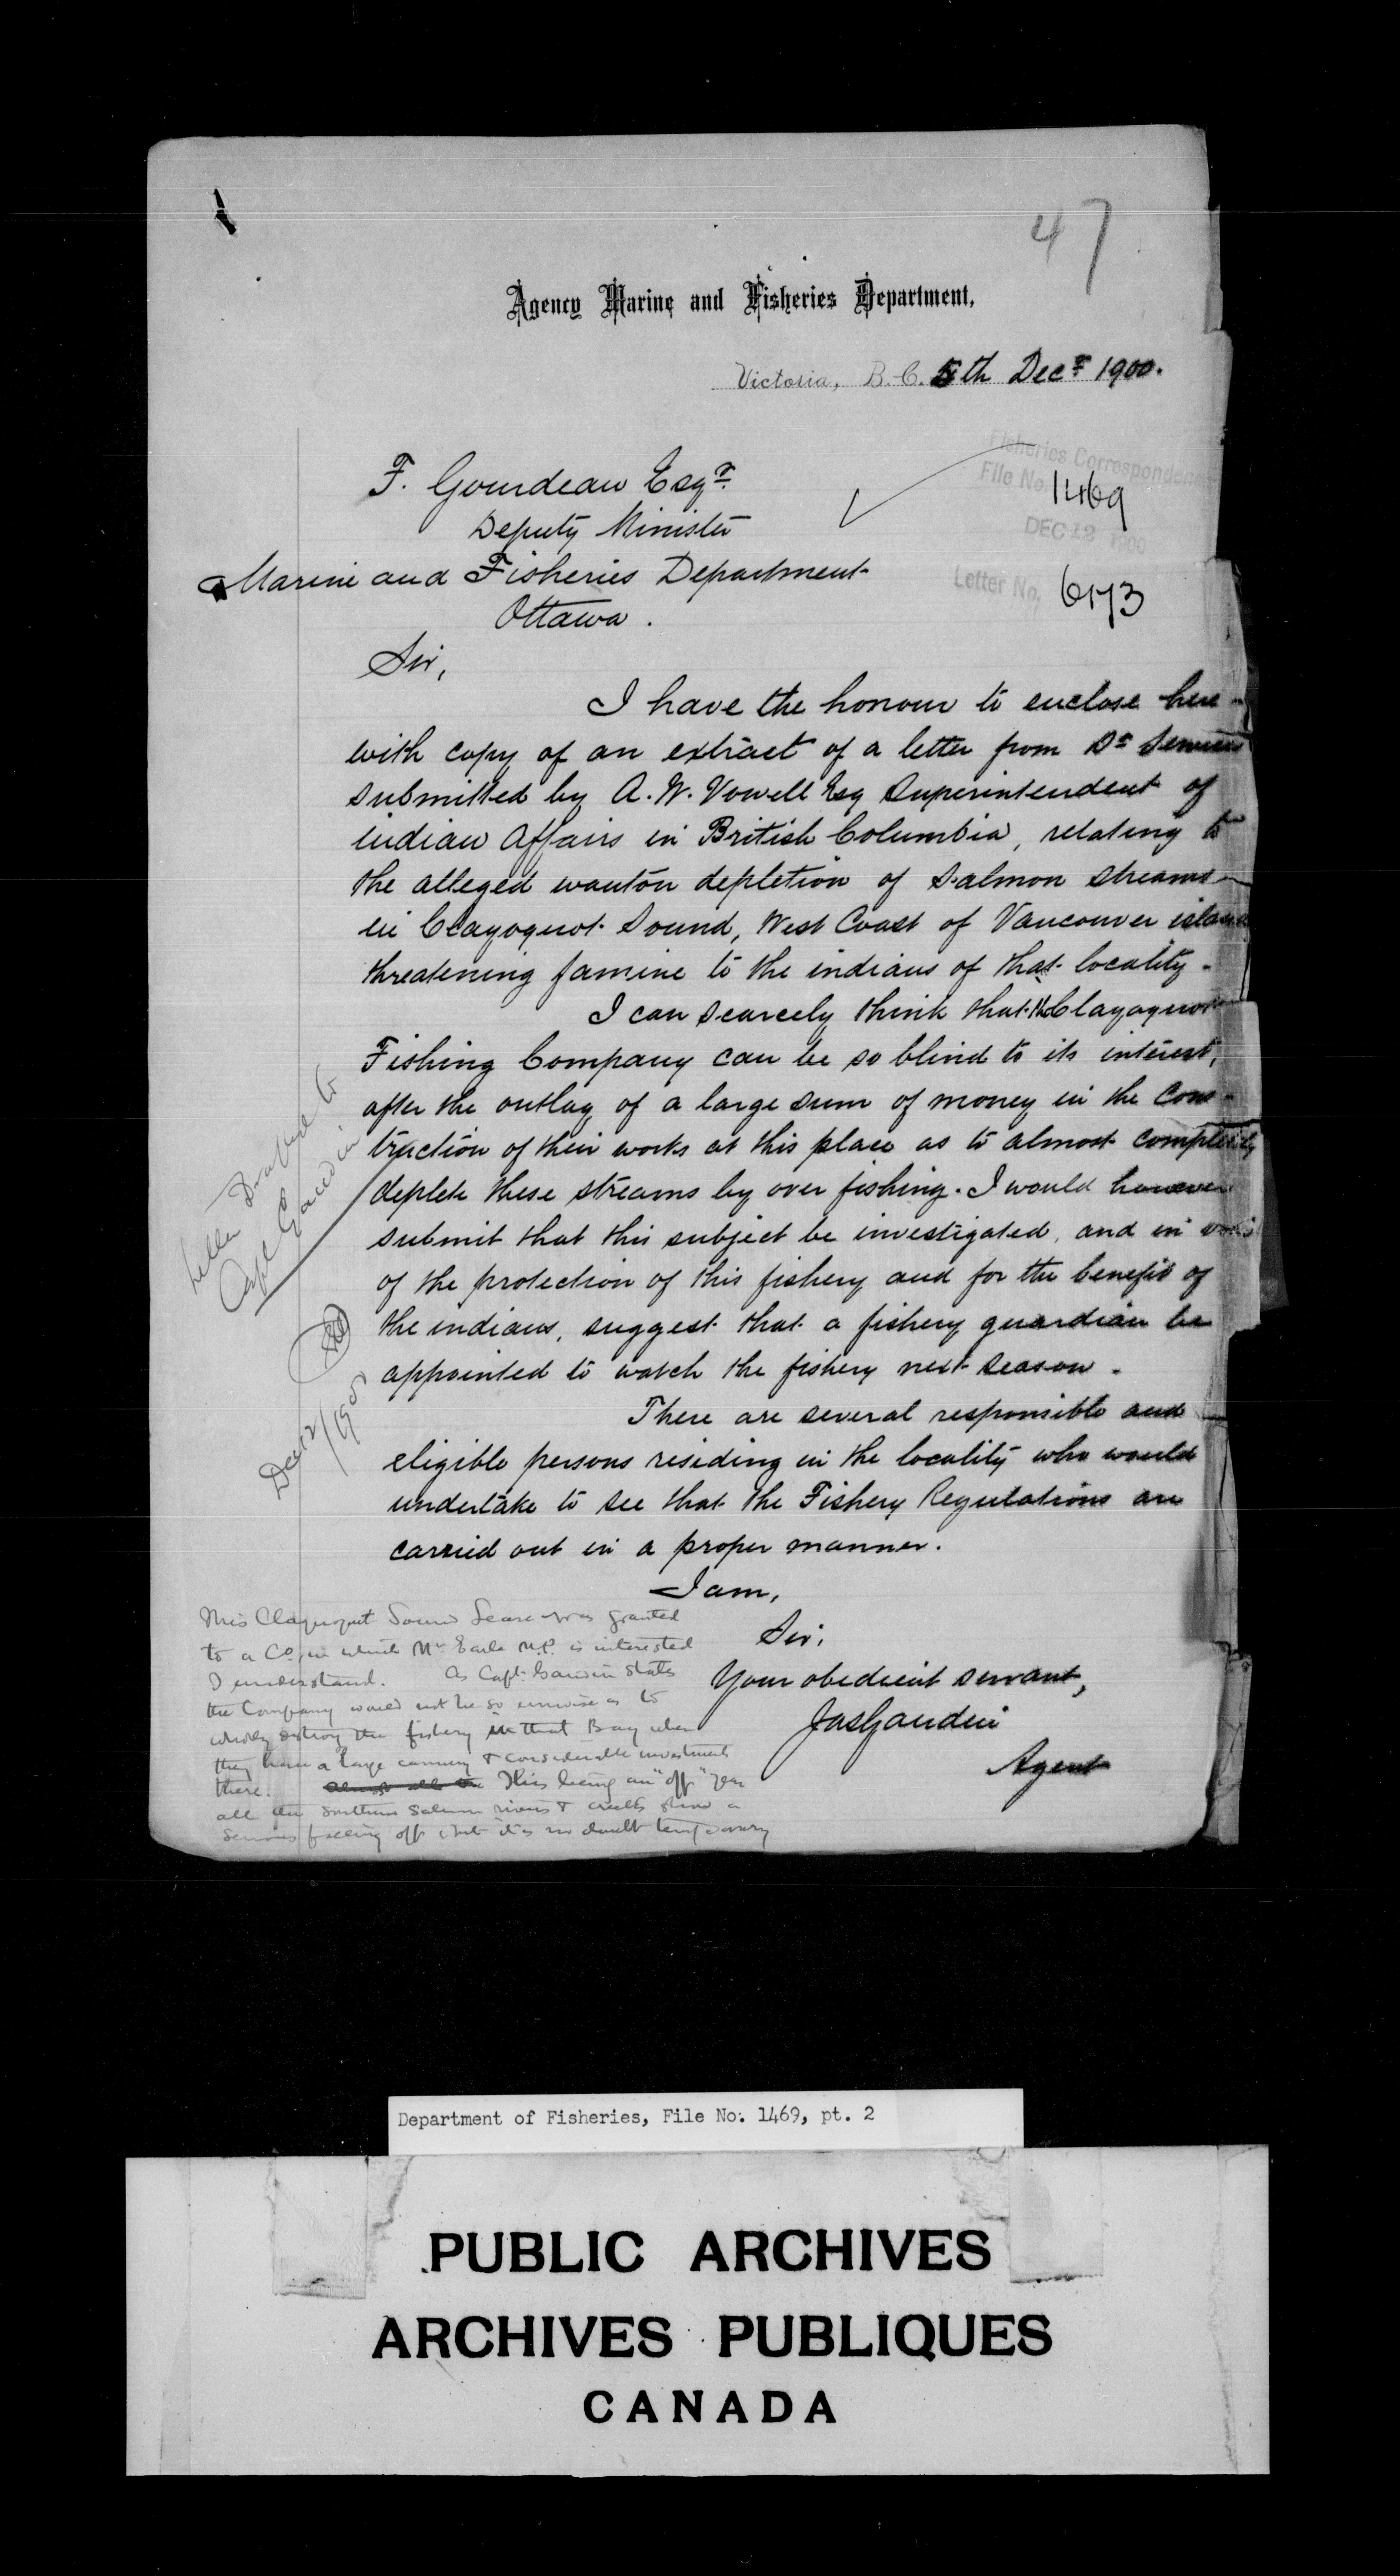 47
Agency Marine and Fisheries Department,
Victoria, B.C. 5th Decr 1900.
Fisheries Correspondence
File No. 1469
DEC 12 1900
Letter No. 6173
F. Gourdeau Esqr.
Deputy Minister
Marine and Fisheries Department
Ottawa.
Sir,
I have the honour to enclose here
with copy of an extract of a letter from Dr
submitted by A. W. Vowell Esq Superintendent of
indian affairs in British Columbia, relating to
the alleged wanton depletion of salmon streams
in Clayoquot Sound, West Coast of Vancouver island
threatening famine to the indians of that locality.
I can scarcely think that the Clayoquot
Fishing Company can be so blind to its interest,
after the outlay of a large sum of money in the cons-
truction of their works at this place as to almost completely
deplete these streams by over fishing. I would however
submit that this subject be investigated, and in
of the protection of this fishery and for the benefit of
the indians, suggest that a fishery guardian be
appointed to watch the fishery next season.
There are several responsible and
eligible persons residing in the locality who would
undertake to see that the Fishery Regulations are
carried out in a proper manner.
I am,
Sir,
Your obedient servant,
Jas Gaudin
Agent
Letter Drafted to
Capt Gaudin
Dec 12/1900
This Clayoquot Sound Lease was granted
to a Co. in which Mr Earle M.P. is interested
I understand. As Capt. Gaudin states
the Company would not be so unwise as to
wholly destroy the fishery in that Bay when
they have a large cannery & considerable investment
there. This being an "off" year
all the southern salmon rivers & creeks show a
serious falling off but it is no doubt temporary
Department of Fisheries, File No. 1469, pt. 2
PUBLIC ARCHIVES
ARCHIVES PUBLIQUES
CANADA